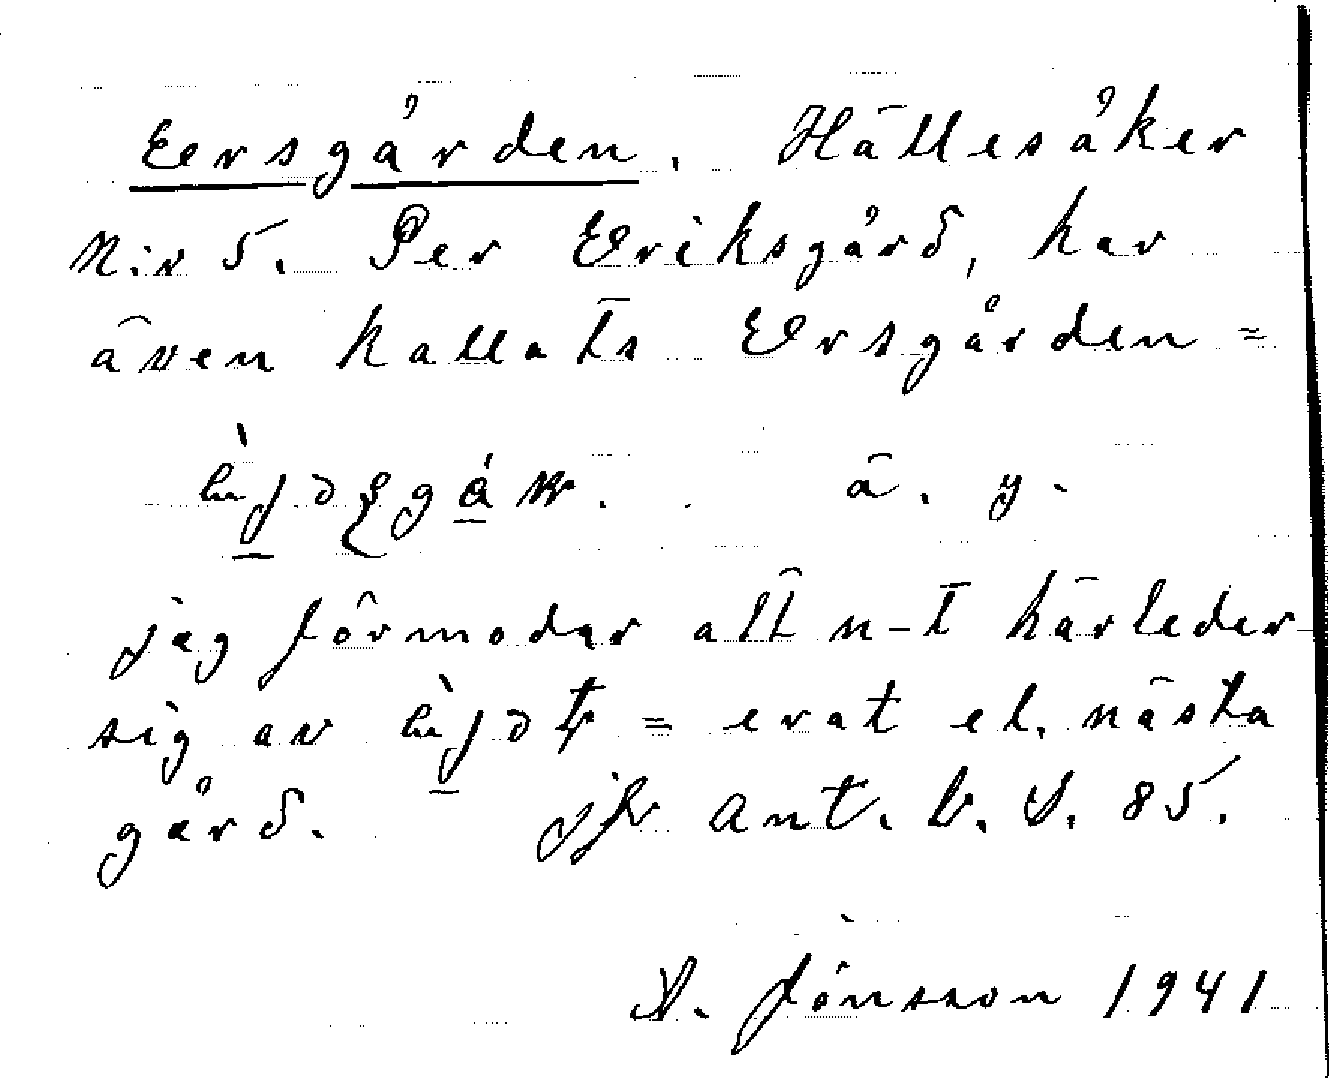 Eersgården. Hällesåker
N:r 5. Per Eriksgård, har
även kallats Ersgården =
ä. y.
jag förmodar att n-t härleder
sig av = erat el. nästa
gård. jfr Ant. b. S. 85.
A. Jönsson 1941